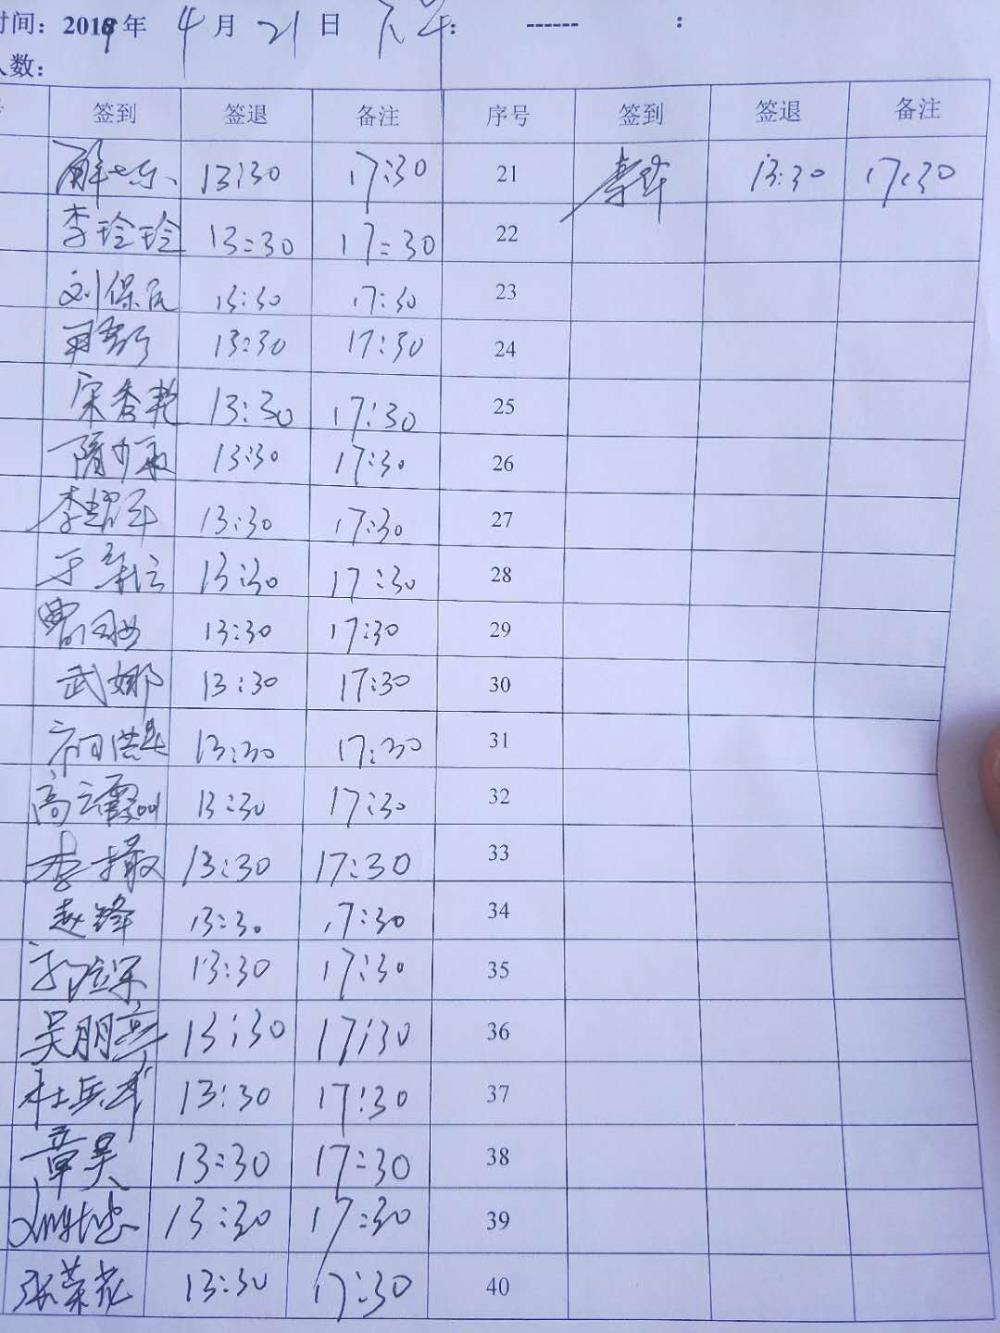 时间: 2019年 4月21日 下午: ------ :
人数:
签到 签退 备注 序号 签到 签退 备注
13:30 17:30 21 13:30 17:30
李玲玲 13:30 17:30 22
刘保民 13:30 17:30 23
13:30 17:30 24
宋香艳 13:30 17:30 25
隋少丽 13:30 17:30 26
李耀军 13:30 17:30 27
13:30 17:30 28
13:30 17:30 29
武娜 13:30 17:30 30
13:30 17:30 31
高云霞 13:30 17:30 32
李 13:30 17:30 33
赵锋 13:30 17:30 34
13:30 17:30 35
吴朋亮 13:30 17:30 36
杜兵武 13:30 17:30 37
章昊 13:30 17:30 38
13:30 17:30 39
张荣花 13:30 17:30 40